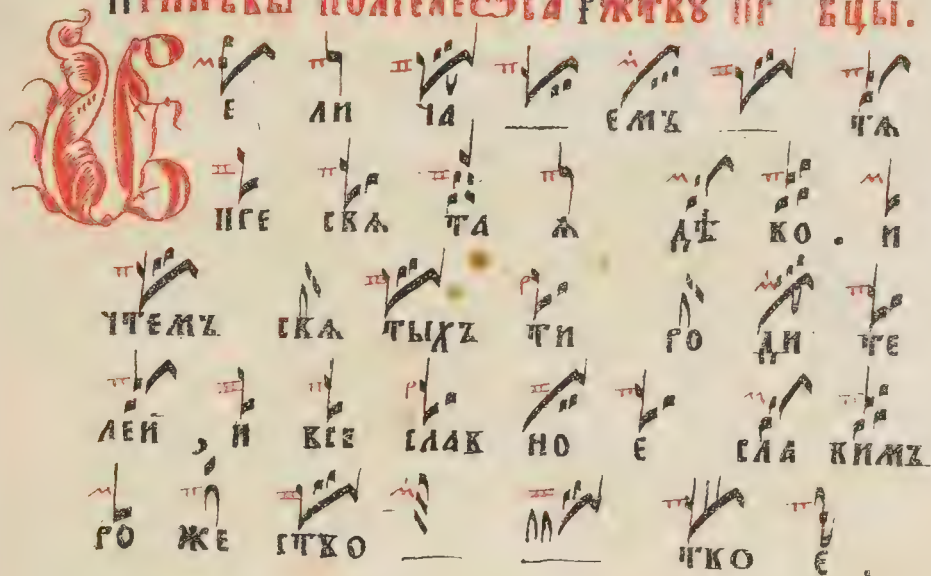 РЖТВꙊ БЦЫ.
ВЕ ЛИ ЧА ЕМЪ ТѦ
ПРЕ СВѦ ТА Ѧ ДѢ ВО . И
ЧТЕМЪ СВѦ ТЫХЪ ТИ РО ДИ ТЕ
ЛЕЙ , И ВСЕ СЛАВ НО Е СЛА ВИМЪ
РО ЖЕ СТВО ТВО Е .